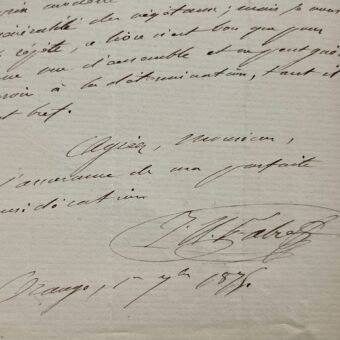 moderne
généralité des végétaux ; mais je vous
répète, ce livre n'est bon que pour
une vue d'ensemble et ne peut guère
servir à la détermination, tant il
est bref.
Agréez, Monsieur,
l'assurance de ma parfaite
considération
J. H. Fabre
Orange, 1er 7bre 1875.